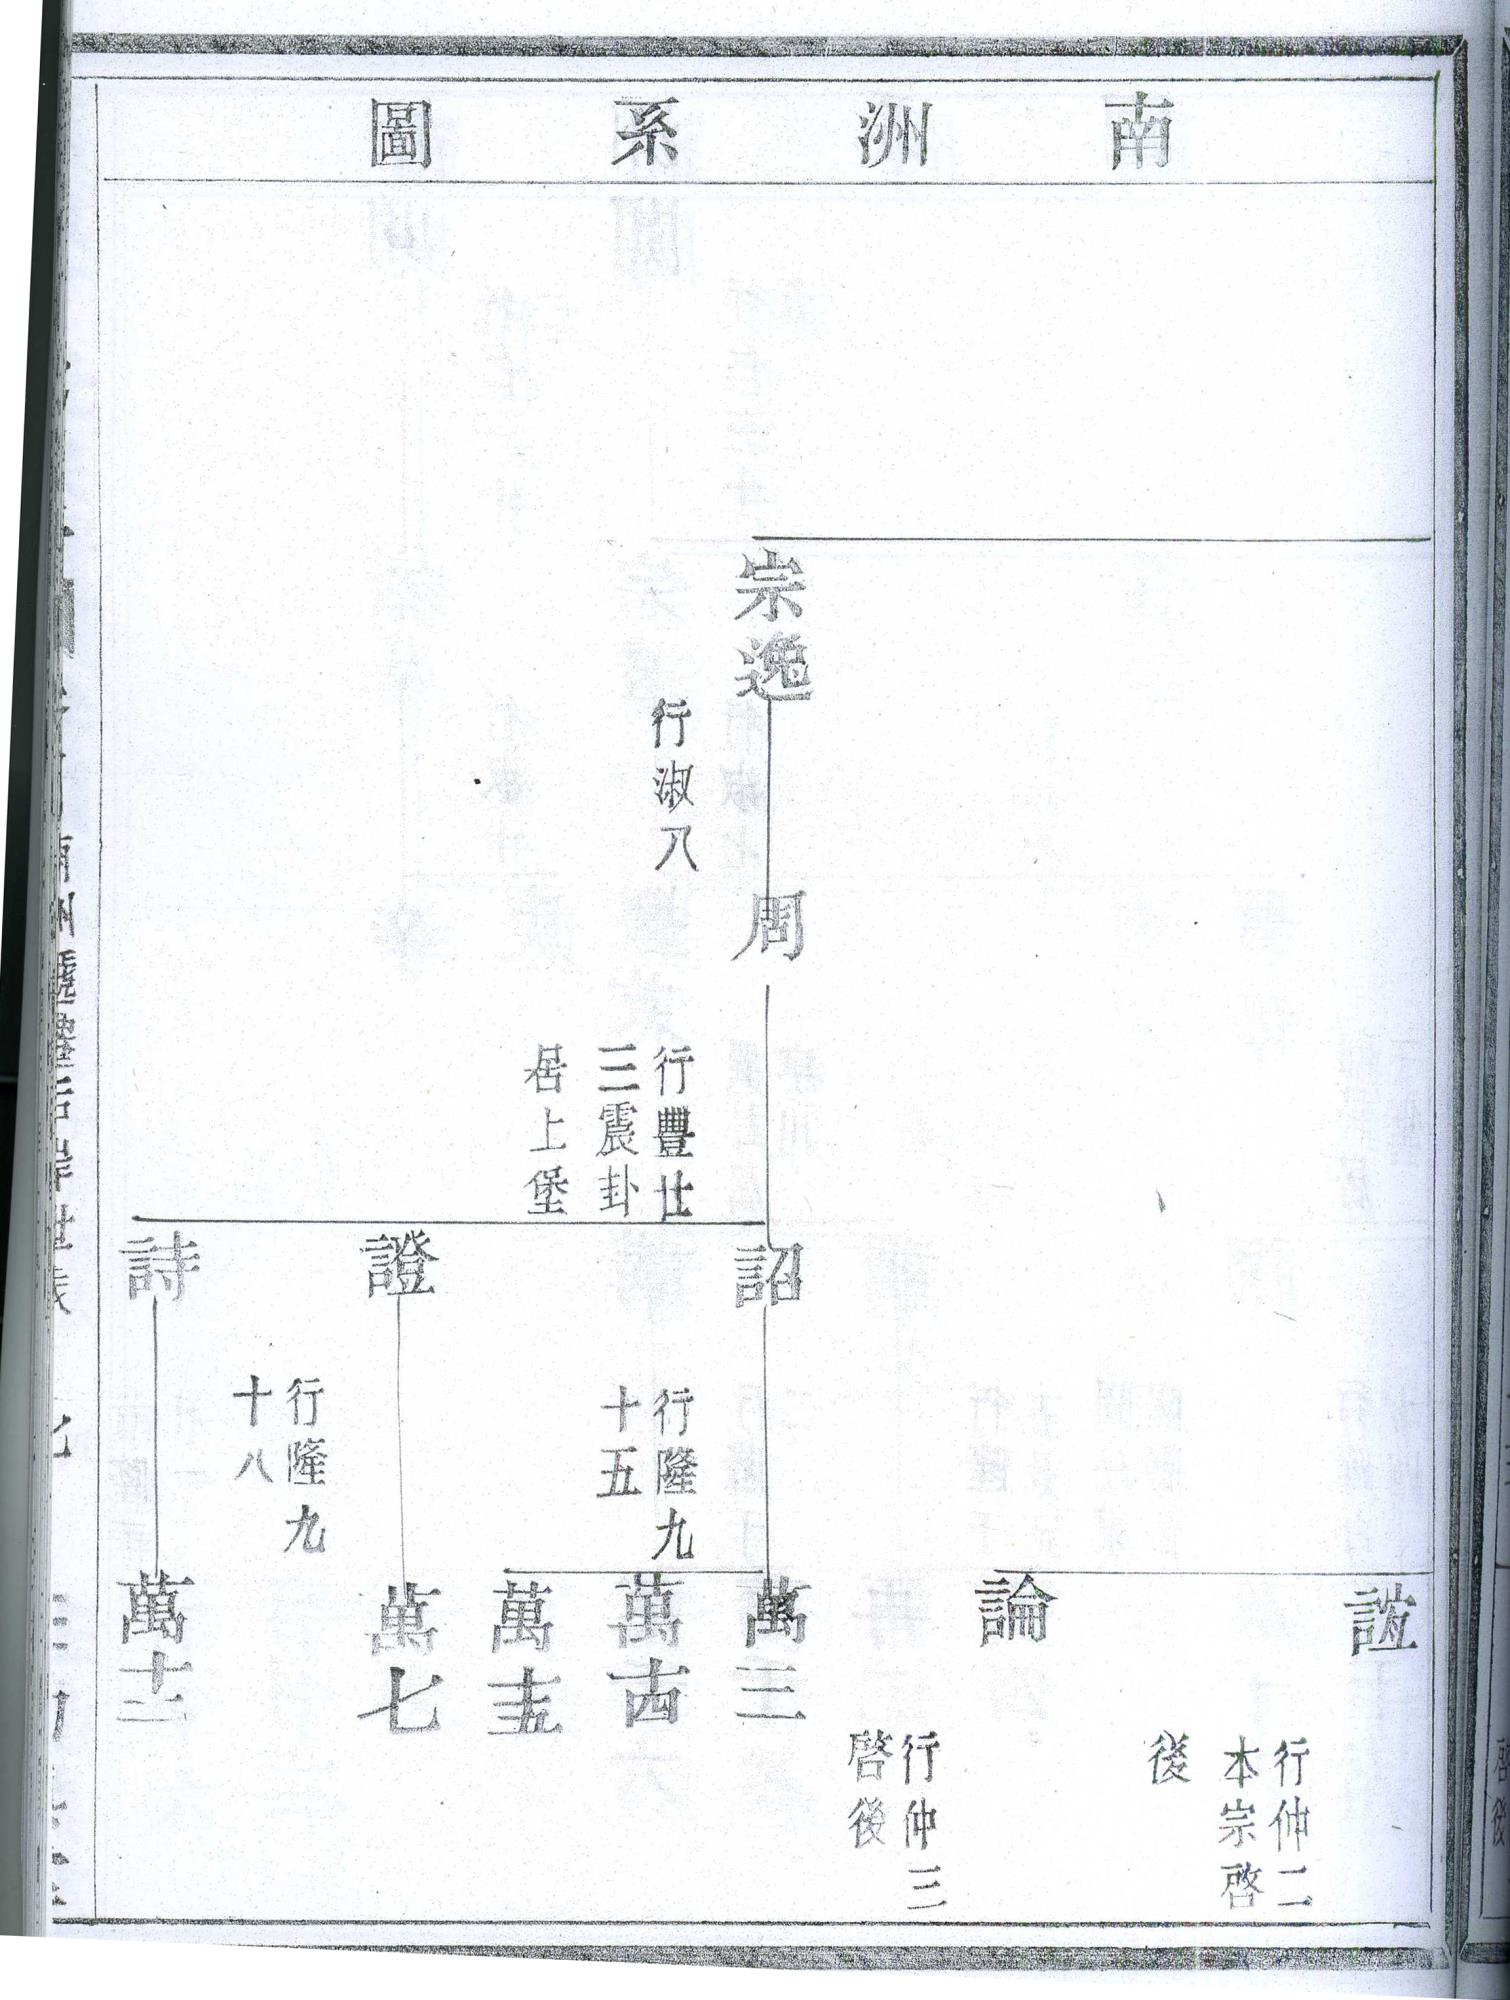 南洲系圖
宗逸
行淑八
周
行豐廿
三震卦
居上堡
詔
行隆九
十五
證
行隆九
十八
詩
誼
行仲二
本宗啓
後
論
行仲三
啓後
萬三
萬十四
萬十五
萬七
萬十二
啓後